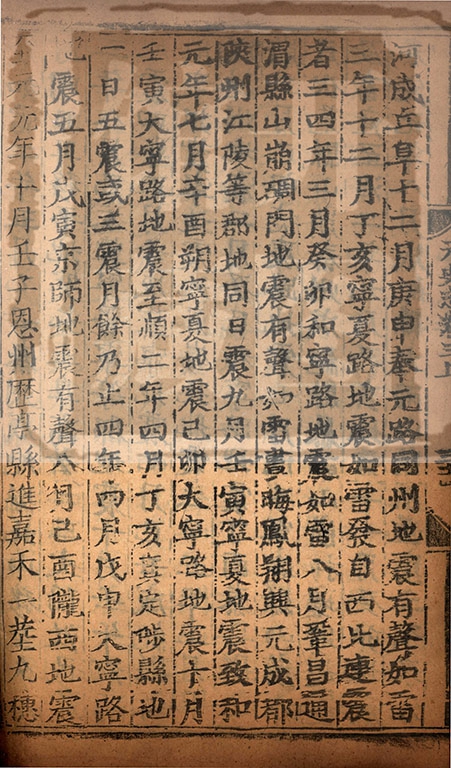 河成丘阜十二月庚申奉元路同州地震有聲如雷
三年十二月丁亥寧夏路地震如雷發自西北連震
者三四年三月癸卯和寧路地震如雷八月鞏昌通
渭縣山崩碉門地震有聲如雷晝晦鳳翔興元成都
陝州江陵等郡地同日震九月壬寅寧夏地震致和
元年七月辛酉朔寧夏地震己卯大寧路地震十月
壬寅大寧路地震至順二年四月丁亥真定陟縣地
一日五震或三震月餘乃止四年四月戊申大寧路
地震五月戊寅京師地震有聲八月己酉隴西地震
元年十月壬子恩州歷亭縣進嘉禾一莖九穗